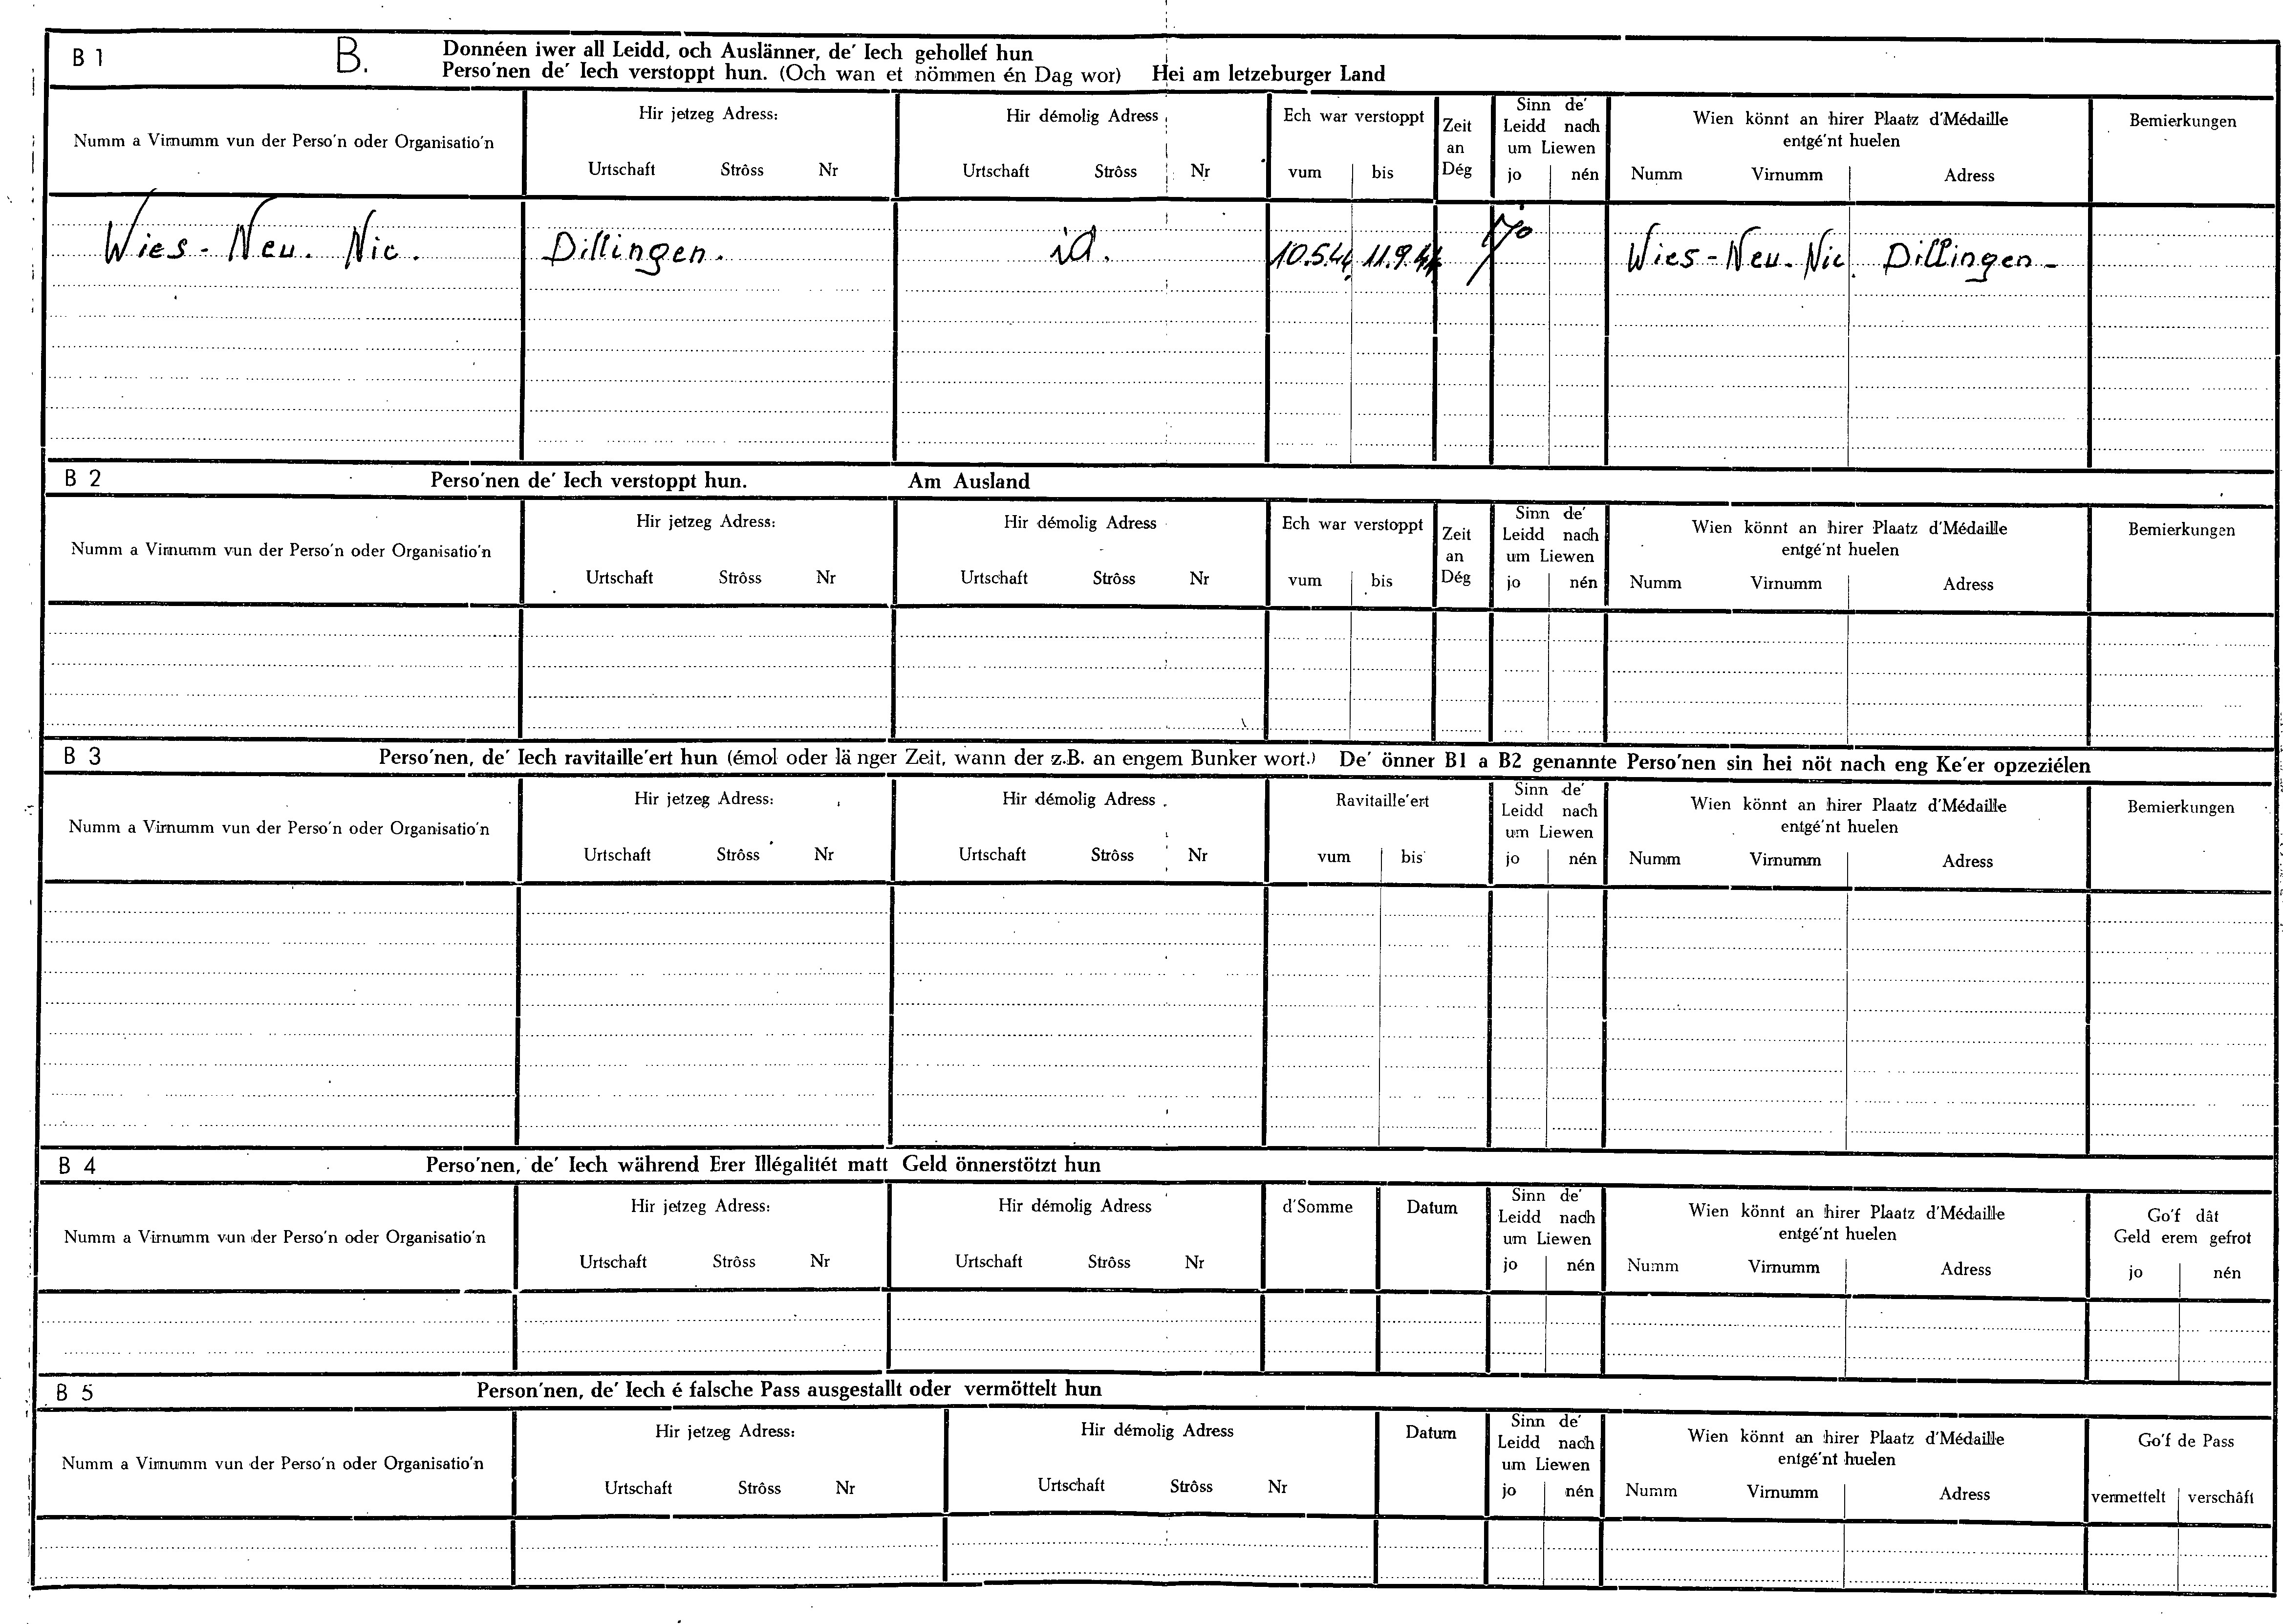 B 1 B. Donnéen iwer all Leidd, och Auslänner, de' Iech gehollef hun
Perso'nen de' Iech verstoppt hun. (Och wan et nömmen én Dag wor) Hei am letzeburger Land
Numm a Virnumm vun der Perso'n oder Organisatio'n
Hir jetzeg Adress:
Urtschaft Strôss Nr
Hir démolig Adress
Urtschaft Strôss Nr
Ech war verstoppt
vum bis
Zeit
an
Dég
Sinn de'
Leidd nach
um Liewen
jo nén
Wien könnt an hirer Plaatz d'Médaille
entgé'nt huelen
Numm Virnumm Adress
Bemierkungen
Wies - Neu. Nic. Dillingen. id. 10.5.44 11.9.44 jo Wies - Neu - Nic. Dillingen -
B 2 Perso'nen de' Iech verstoppt hun. Am Ausland
Numm a Virnumm vun der Perso'n oder Organisatio'n
Hir jetzeg Adress:
Urtschaft Strôss Nr
Hir démolig Adress
Urtschaft Strôss Nr
Ech war verstoppt
vum bis
Zeit
an
Dég
Sinn de'
Leidd nach
um Liewen
jo nén
Wien könnt an hirer Plaatz d'Médaille
entgé'nt huelen
Numm Virnumm Adress
Bemierkungen
B 3 Perso'nen, de' Iech ravitaille'ert hun (émol oder länger Zeit, wann der z.B. an engem Bunker wort.) De' önner B1 a B2 genannte Perso'nen sin hei nöt nach eng Ke'er opzeziélen
Numm a Virnumm vun der Perso'n oder Organisatio'n
Hir jetzeg Adress:
Urtschaft Strôss Nr
Hir démolig Adress
Urtschaft Strôss Nr
Ravitaille'ert
vum bis
Sinn de'
Leidd nach
um Liewen
jo nén
Wien könnt an hirer Plaatz d'Médaille
entgé'nt huelen
Numm Virnumm Adress
Bemierkungen
B 4 Perso'nen, de' Iech während Erer Illégalitét matt Geld önnerstötzt hun
Numm a Virnumm vun der Perso'n oder Organisatio'n
Hir jetzeg Adress:
Urtschaft Strôss Nr
Hir démolig Adress
Urtschaft Strôss Nr
d'Somme
Datum
Sinn de'
Leidd nach
um Liewen
jo nén
Wien könnt an hirer Plaatz d'Médaille
entgé'nt huelen
Numm Virnumm Adress
Go'f dât
Geld erem gefrot
jo nén
B 5 Person'nen, de' Iech é falsche Pass ausgestallt oder vermöttelt hun
Numm a Virnumm vun der Perso'n oder Organisatio'n
Hir jetzeg Adress:
Urtschaft Strôss Nr
Hir démolig Adress
Urtschaft Strôss Nr
Datum
Sinn de'
Leidd nach
um Liewen
jo nén
Wien könnt an hirer Plaatz d'Médaille
entgé'nt huelen
Numm Virnumm Adress
Go'f de Pass
vermettelt verschâft